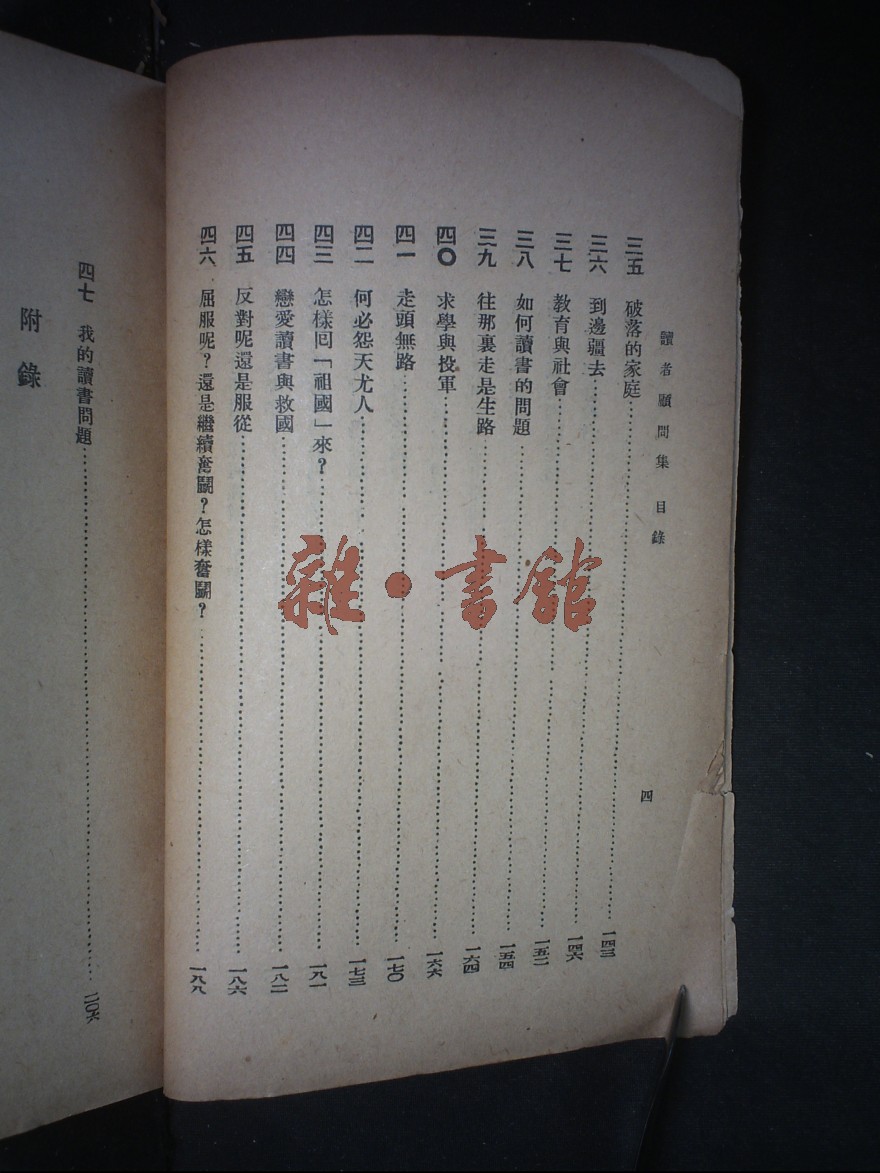 讀者顧問集 目錄
四
三五 破落的家庭……一四三
三六 到邊疆去……一四六
三七 教育與社會……一五二
三八 如何讀書的問題……一五四
三九 往那裏走是生路……一六四
四〇 求學與投軍……一六六
四一 走頭無路……一七〇
四二 何必怨天尤人……一七三
四三 怎樣回「祖國」來？……一八一
四四 戀愛讀書與救國……一八二
四五 反對呢還是服從……一八六
四六 屈服呢？還是繼續奮鬭？怎樣奮鬭？……一八八
附錄
四七 我的讀書問題……二〇六
雜·書館